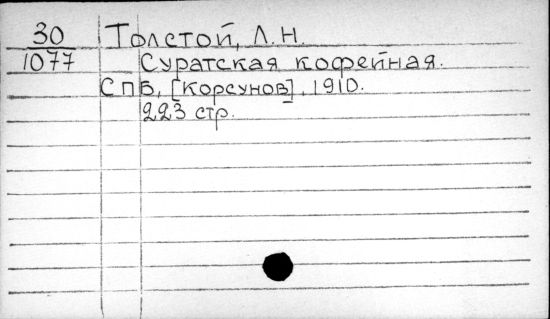 30 Толстой, Л.Н.
1077 Суратская кофейная.
СПБ, [Корсунов], 1910.
223 стр.